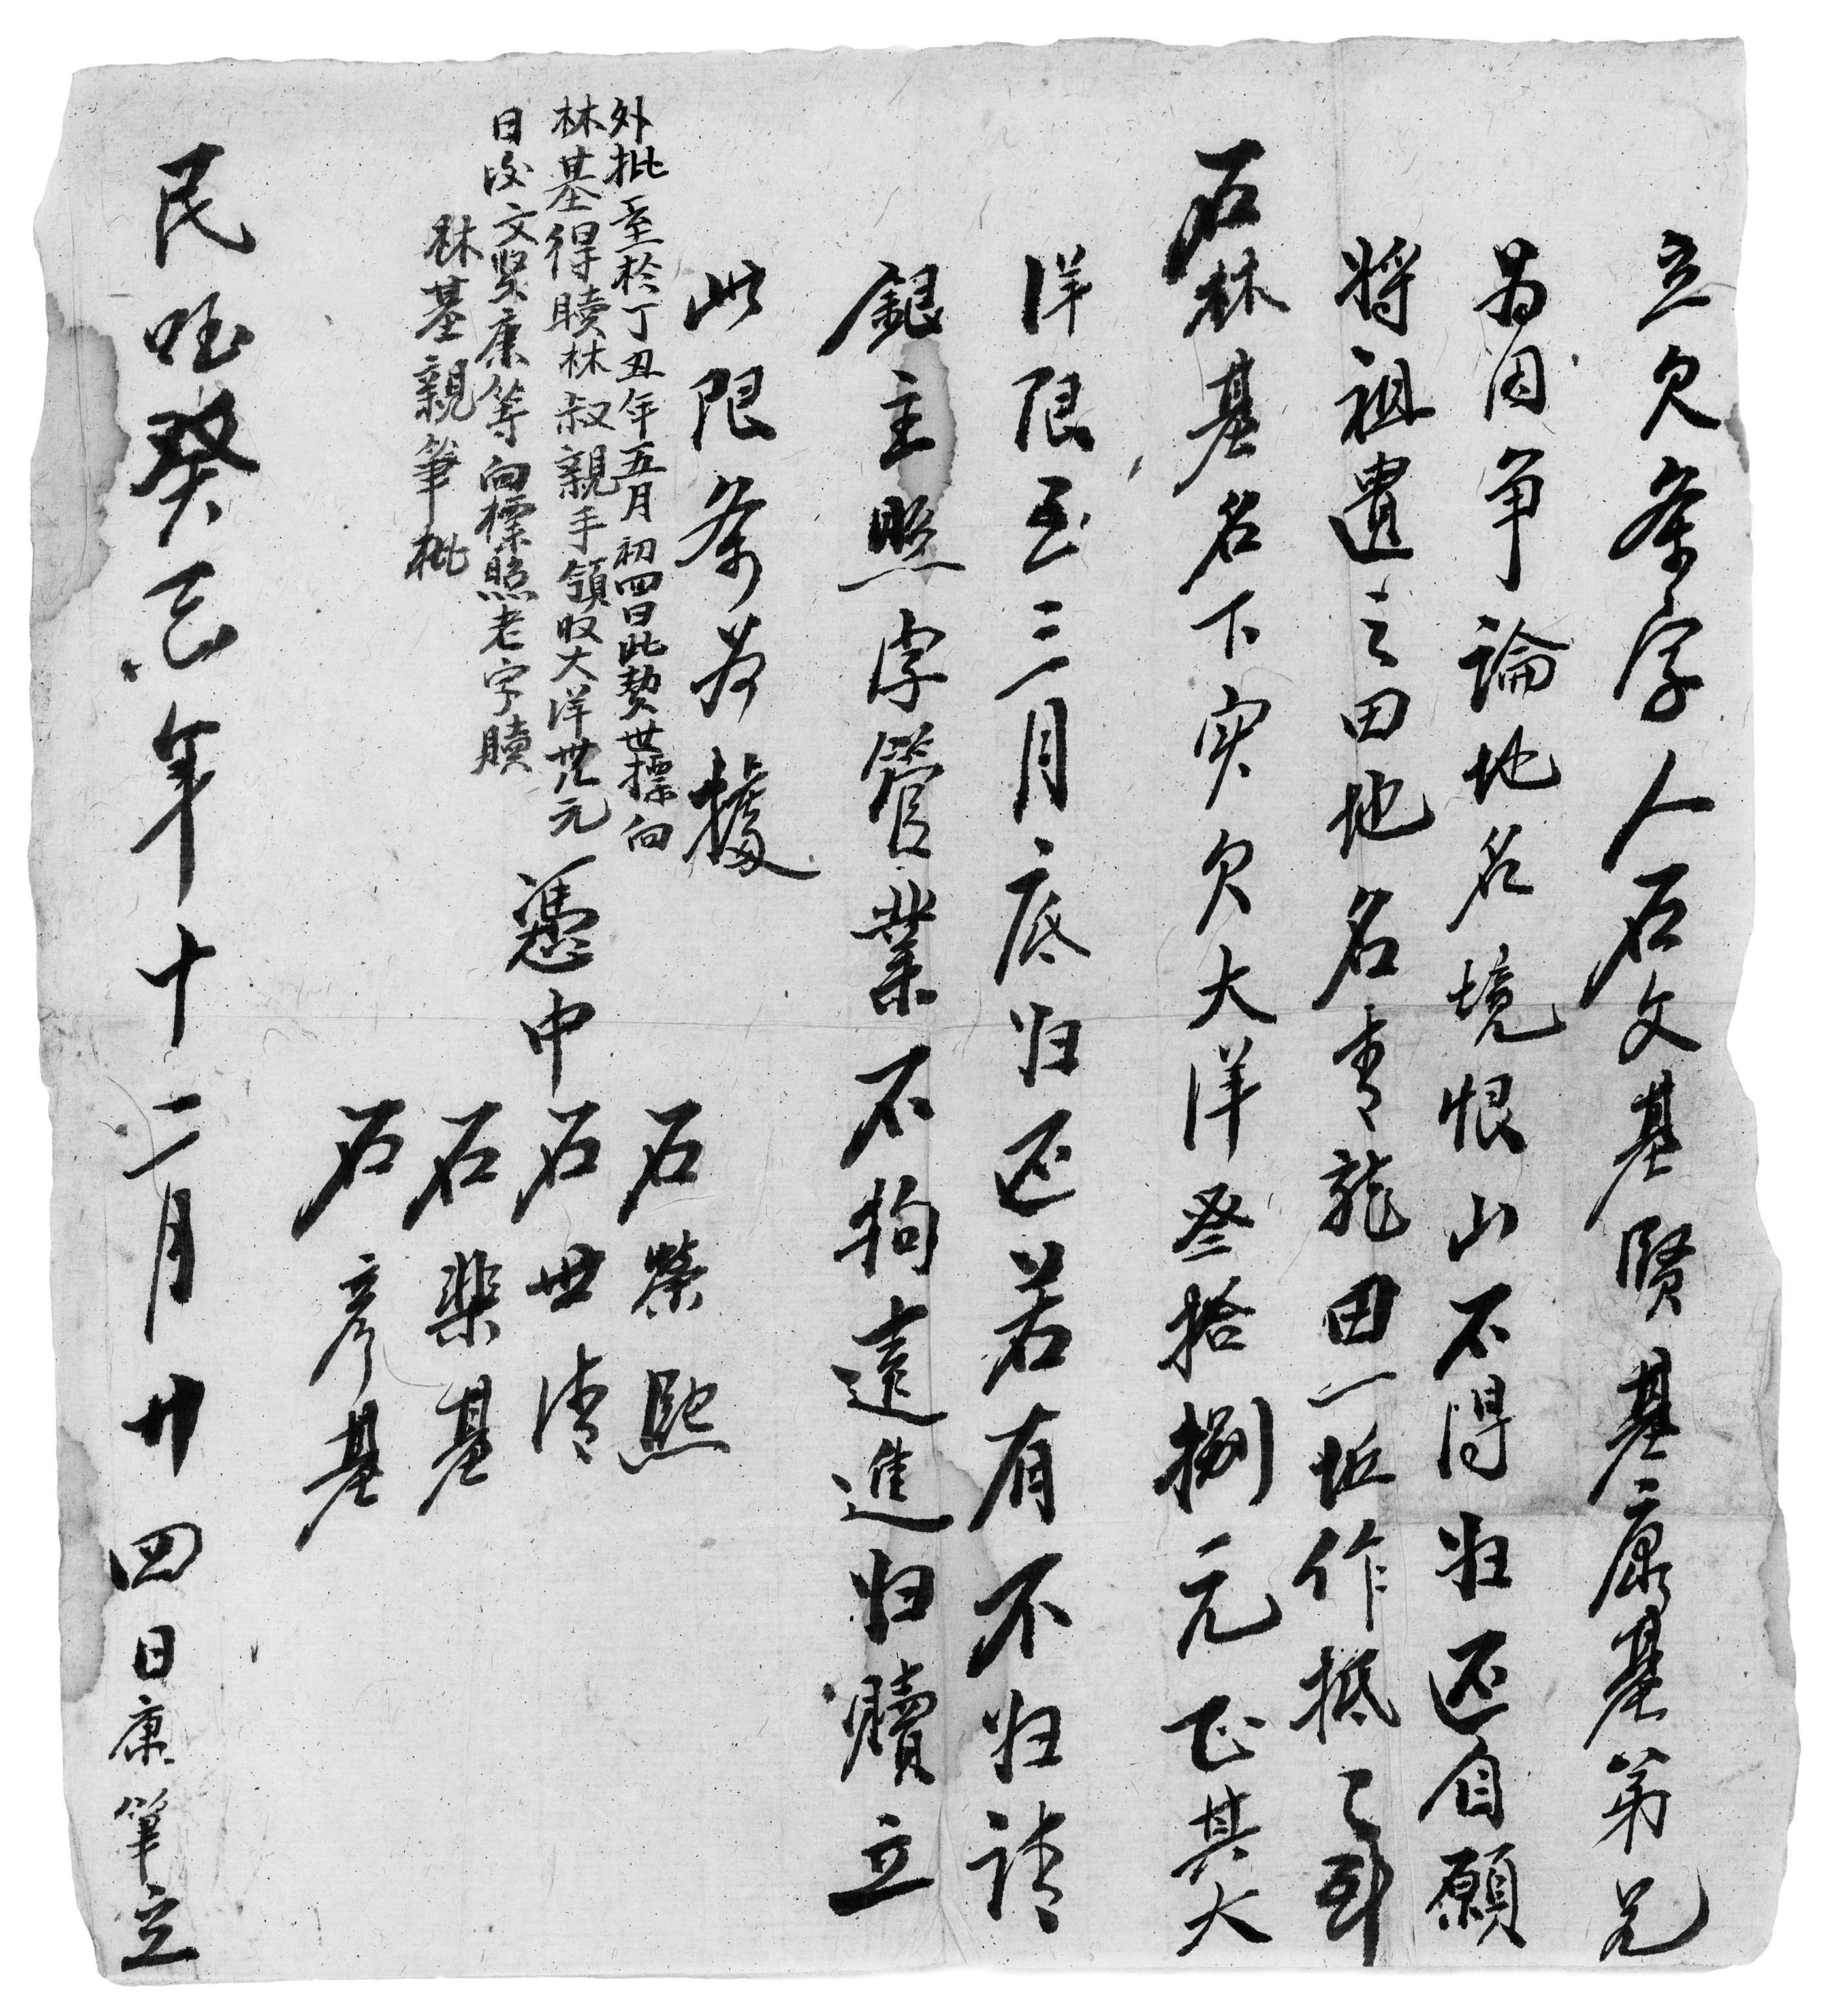 立欠条字人石文基賢基康基弟兄
為因争論地名境恨山不得归还自願
將祖遺之田地名青龍田一坵作抵已到
石林基名下实欠大洋叄拾捌元正其大
洋限至三月底归还若有不归請
銀主照字管業不拘遠進归贖立
此限条为據
外批至於丁丑年五月初四日此契世標向
林基得贖林叔親手領收大洋卅元
日後文賢康等向標照老字贖
林基親筆批
憑中
石榮熙
石世清
石榘基
石彦基
民國癸酉年十二月廿四日康筆立